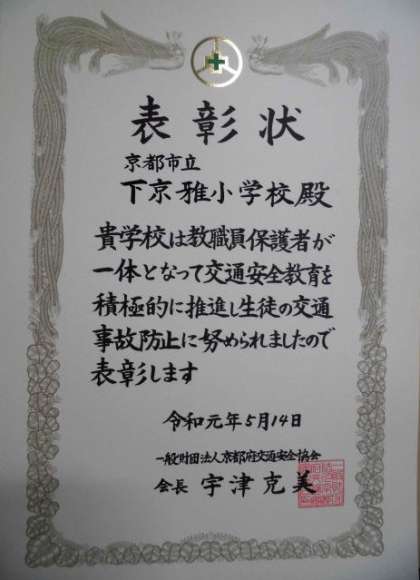 表彰状
京都市立
下京雅小学校殿
貴学校は教職員保護者が
一体となって交通安全教育を
積極的に推進し生徒の交通
事故防止に努められましたので
表彰します
令和元年5月14日
一般財団法人京都府交通安全協会
会長 宇津克美